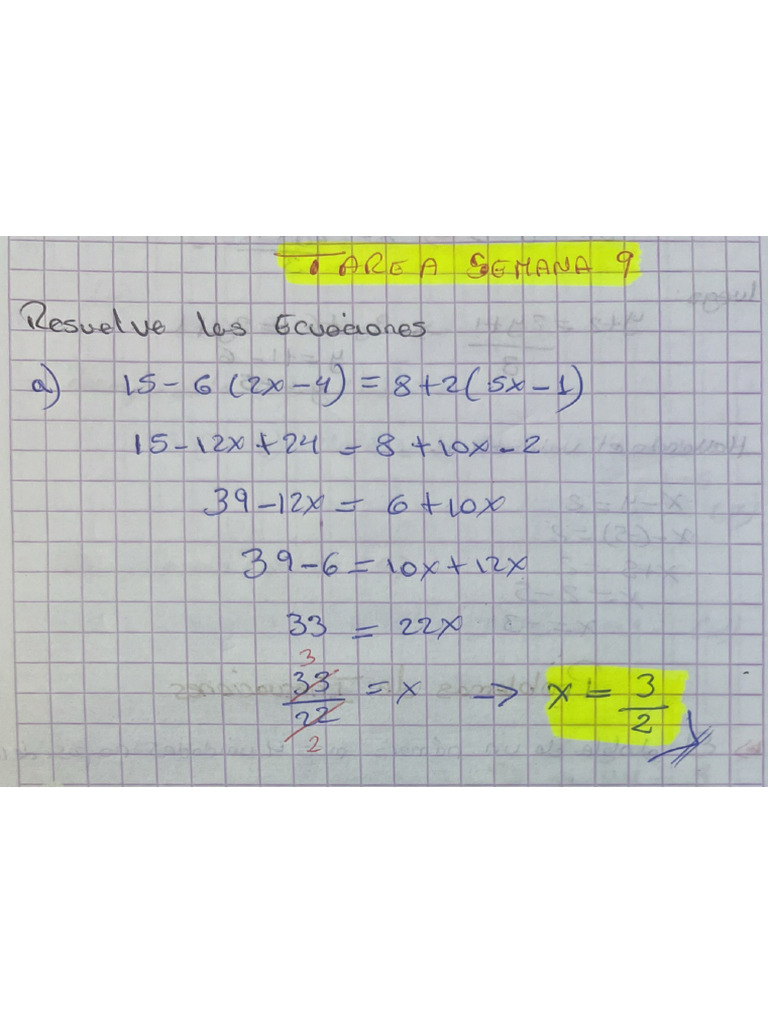 TAREA SEMANA 9
Resuelve las Ecuaciones
a) 15 - 6 (2x - 4) = 8 + 2 (5x - 1)
15 - 12x + 24 = 8 + 10x - 2
39 - 12x = 6 + 10x
39 - 6 = 10x + 12x
33 = 22x
3
33/22 = x → x = 3/2
2